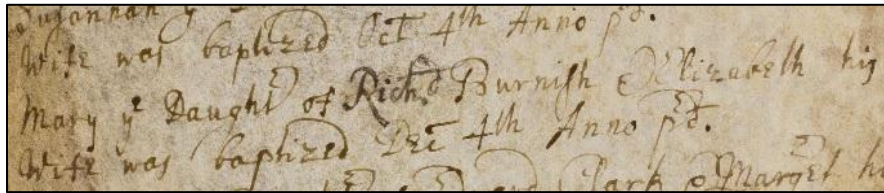 Susannah yᵉ
Wife was baptized Oct 4th Anno pd.
Mary yᵉ Daughtʳ of Richd Burnish & Elizabeth his
Wife was baptized Dec 4th Anno pd.
Clark & Margret